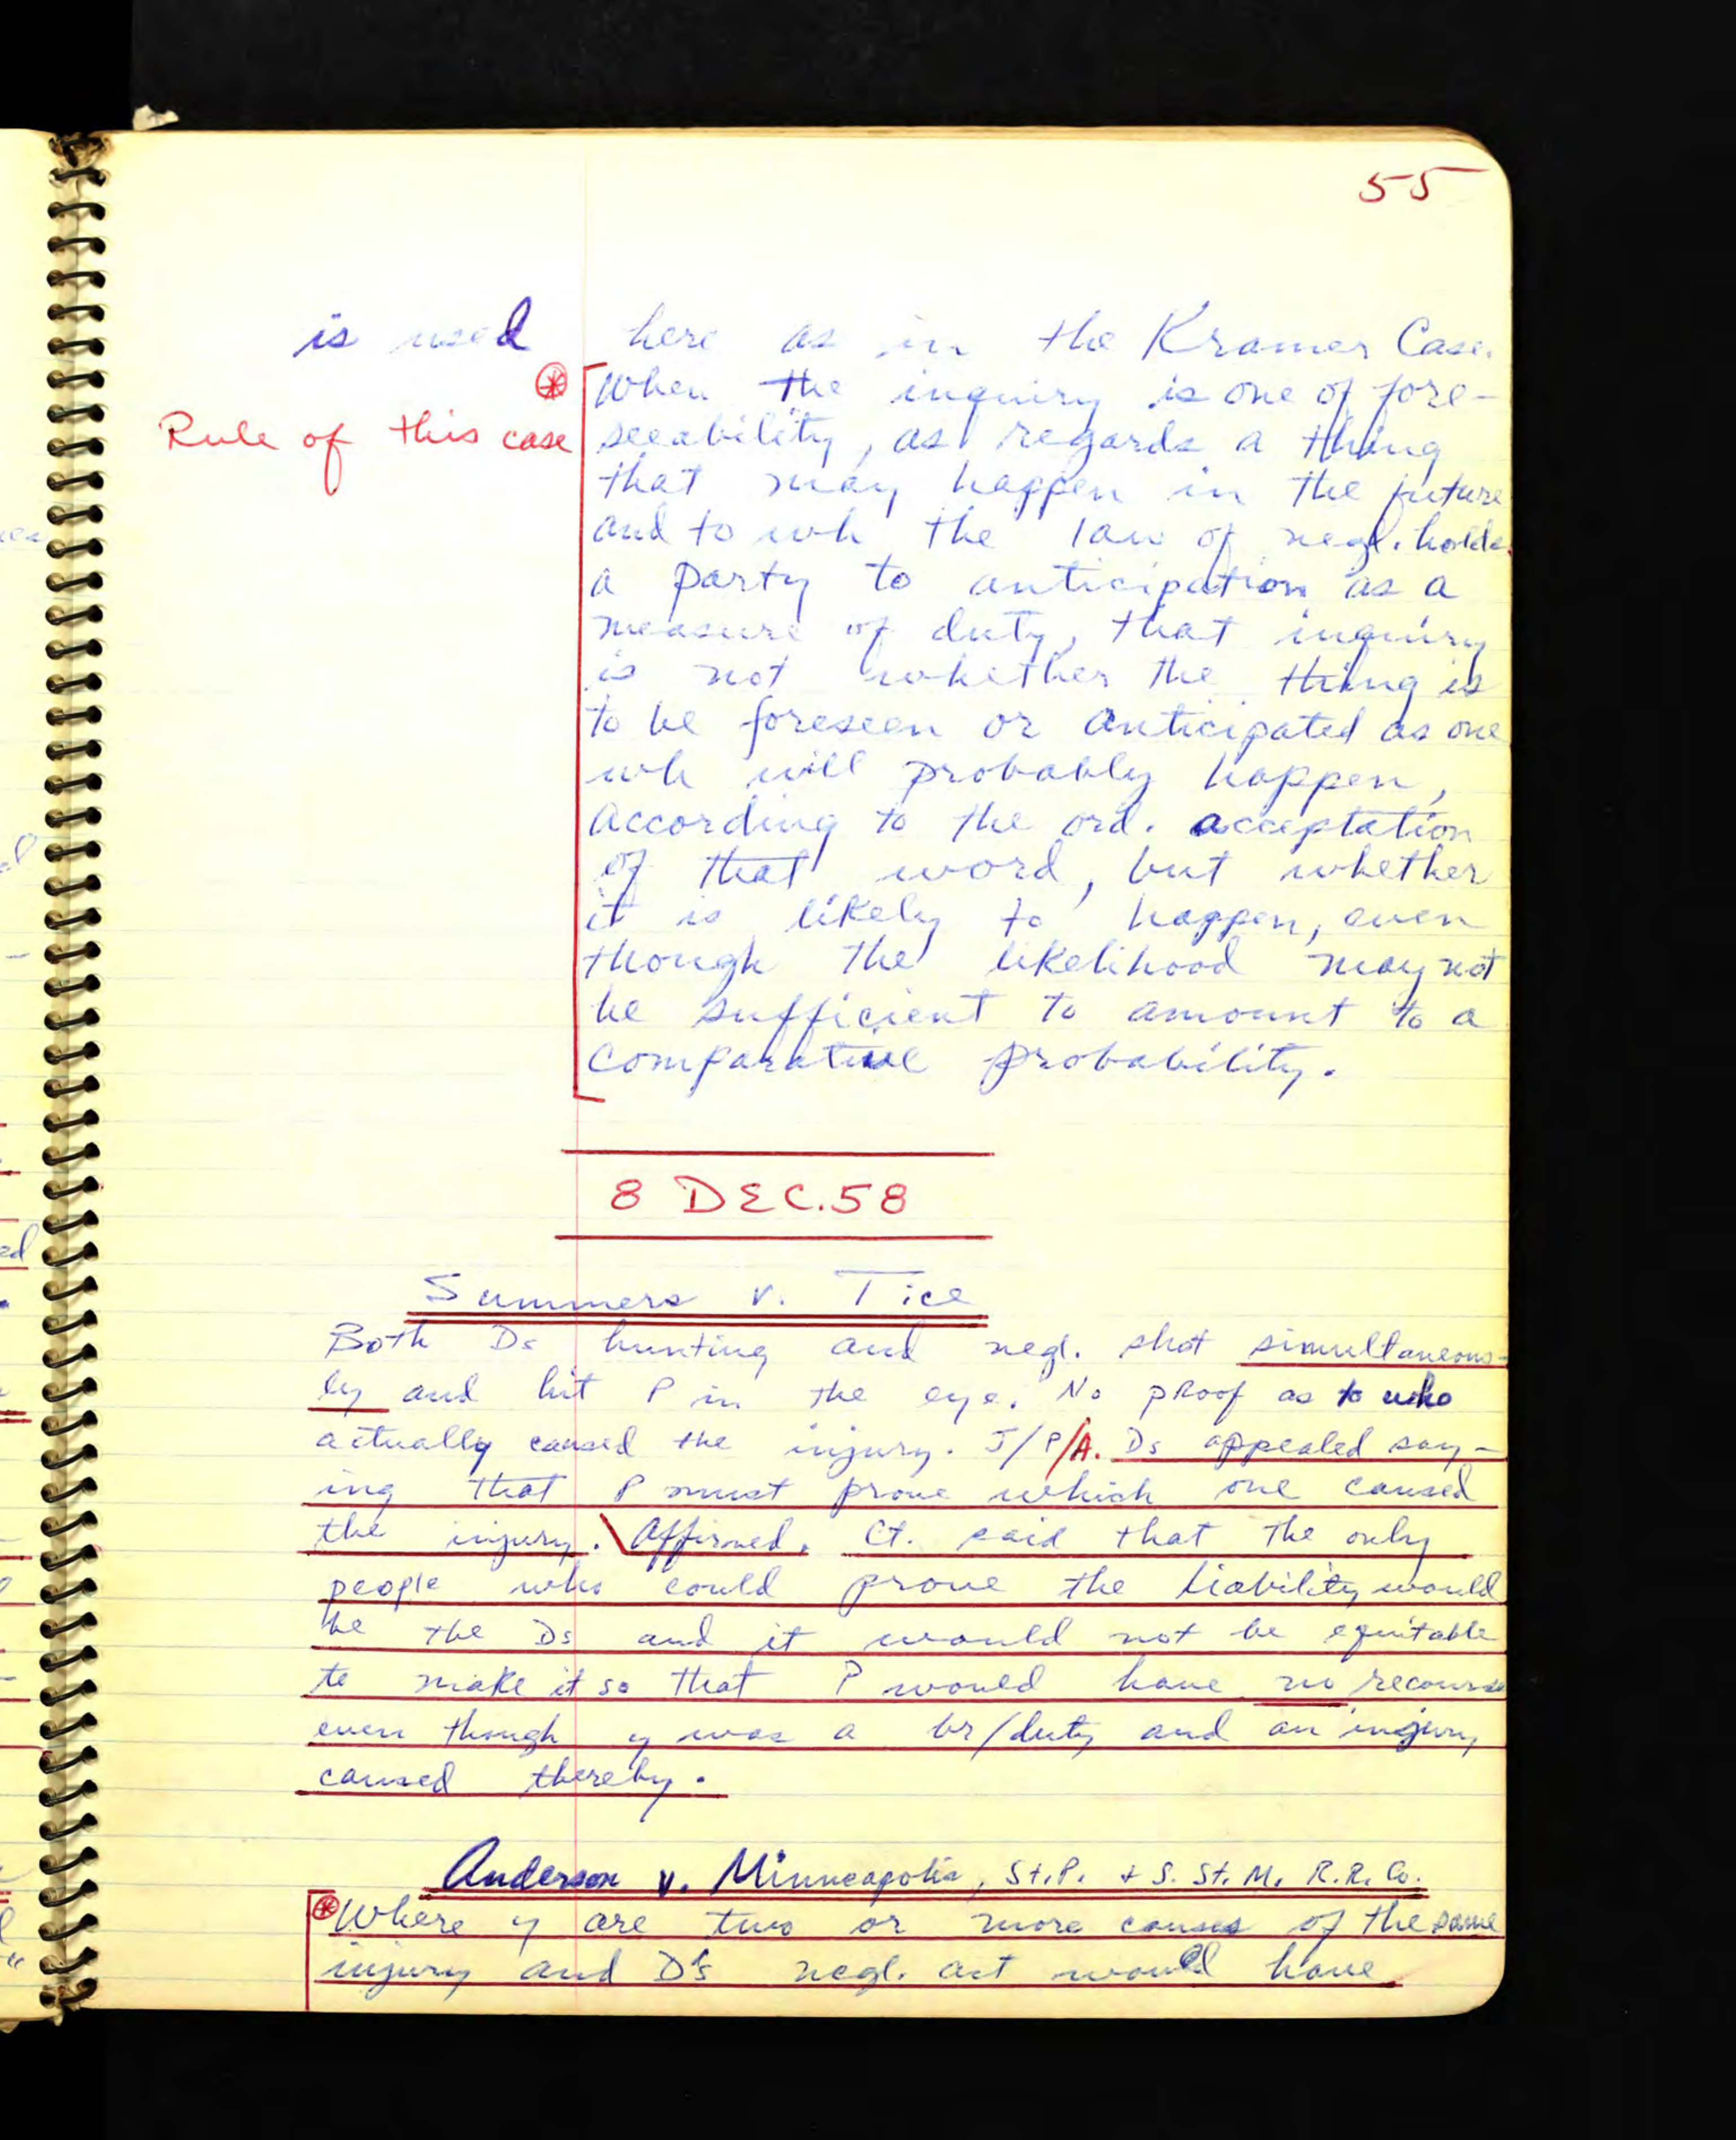 55
is used here as in the Kramer Case.
⊛ When the inquiry is one of fore-
Rule of this case seeability, as regards a thing
that may happen in the future
and to wh the law of negl. holds
a party to anticipation as a
measure of duty, that inquiry
is not whether the thing is
to be foreseen or anticipated as one
wh will probably happen,
according to the ord. acceptation
of that word, but whether
it is likely to happen, even
though the likelihood may not
be sufficient to amount to a
comparative probability.
8 DEC. 58
Summers v. Tice
Both Ds hunting and negl. shot simultaneous-
ly and hit P in the eye. No proof as to who
actually caused the injury. J/P/A. Ds appealed say-
ing that P must prove which one caused
the injury. \ Affirmed. Ct. said that the only
people who could prove the liability would
be the Ds and it would not be equitable
to make it so that P would have no recourse
even though y was a br/duty and an injury
caused thereby.
Anderson v. Minneapolis, St. P. + S. St. M. R.R. Co.
⊛ Where y are two or more causes of the same
injury and D's negl. act would have